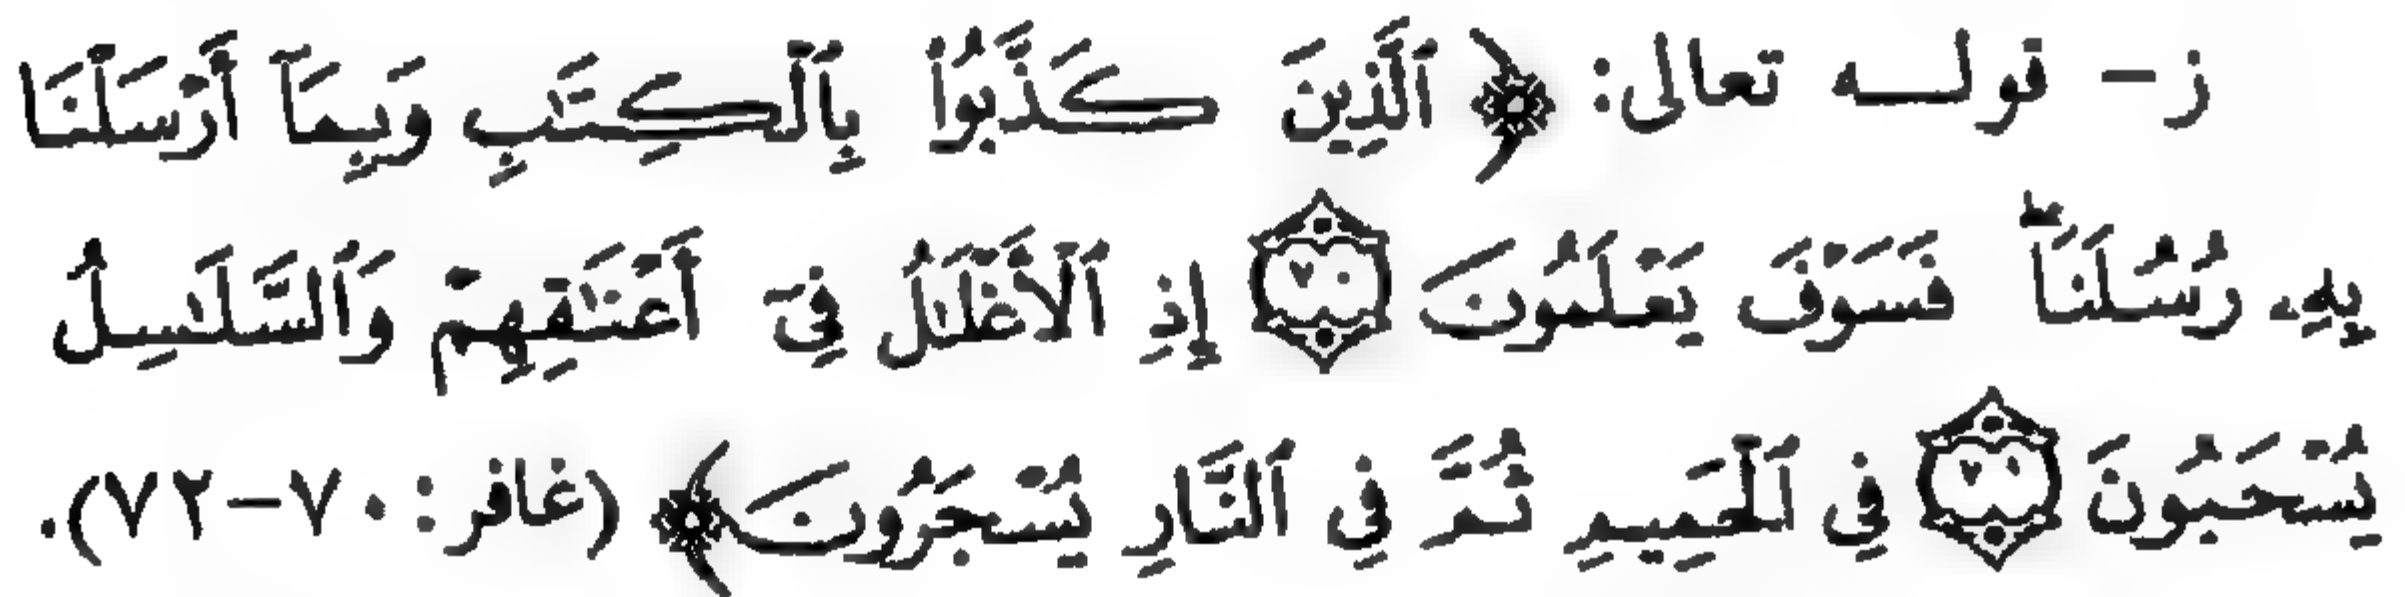 ز- قولـه تعالى: ﴿ ٱلَّذِينَ كَذَّبُوا۟ بِٱلْكِتَٰبِ وَبِمَآ أَرْسَلْنَا
بِهِۦ رُسُلَنَا ۖ فَسَوْفَ يَعْلَمُونَ ۝٧٠ إِذِ ٱلْأَغْلَٰلُ فِىٓ أَعْنَٰقِهِمْ وَٱلسَّلَٰسِلُ
يُسْحَبُونَ ۝٧١ فِي ٱلْحَمِيمِ ثُمَّ فِي ٱلنَّارِ يُسْجَرُونَ ﴾ (غافر: ٧٠-٧٢).